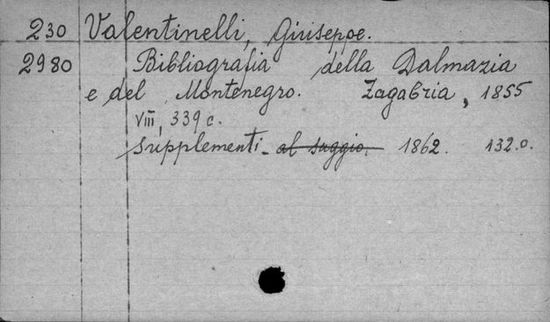 230 Valentinelli, Giuseppe.
2980 Bibliografia della Dalmazia
e del Montenegro. Zagabria, 1855
VIII, 339 c.
Supplementi - al saggio. 1862. 132.o.